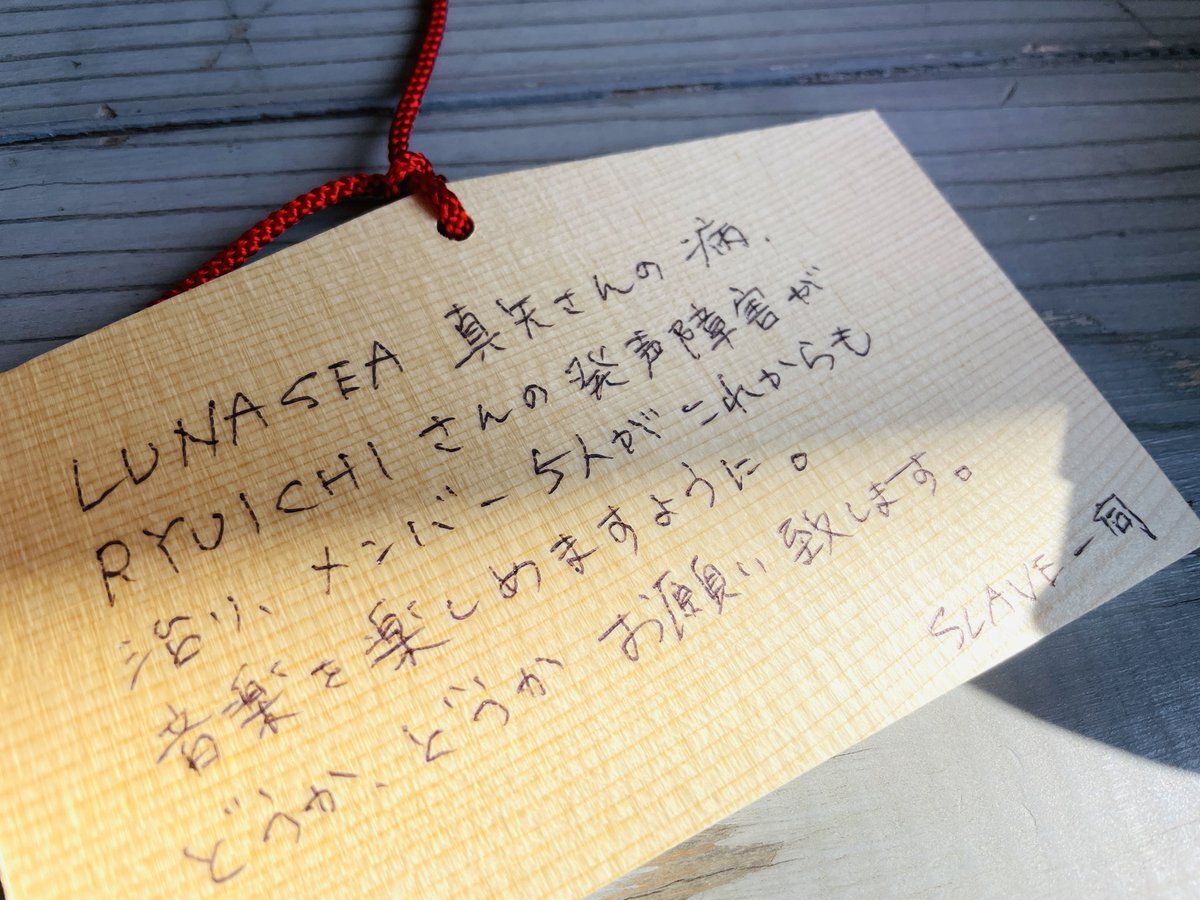 LUNA SEA 真矢さんの病、
RYUICHI さんの発声障害が
治り、メンバー5人がこれからも
音楽を楽しめますように。
どうか、どうかお願い致します。
SLAVE一同